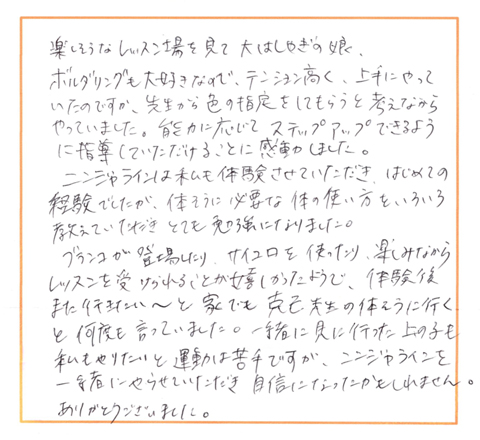 楽しそうなレッスン場を見て大はしゃぎの娘、
ボルダリングも大好きなので、テンション高く、上手にやって
いたのですが、先生から色の指定をしてもらうと考えながら
やっていました。能力に応じてステップアップできるよう
に指導していただけることに感動しました。
ニンジャラインは私も体験させていただき、はじめての
経験でしたが、体そうに必要な体の使い方をいろいろ
教えていただきとても勉強になりました。
ブランコが登場したり、サイコロを使ったり、楽しみながら
レッスンを受けられることが嬉しかったようで、体験後
また行きたい〜と家でも克己先生の体そうに行く
と何度も言っていました。一緒に見に行った上の子も
私もやりたいと運動は苦手ですが、ニンジャラインを
一緒にやらせていただき自信になったかもしれません。
ありがとうございました。